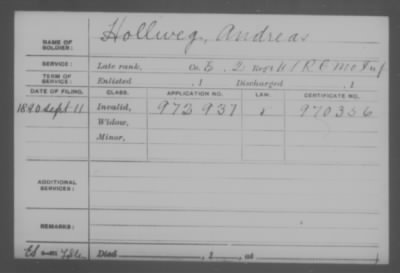 Hollweg, Andreas
NAME OF SOLDIER:
SERVICE: Late rank, Co. E, 2 Reg't U S R C Mo Inf
TERM OF SERVICE: Enlisted , 1 Discharged , 1
DATE OF FILING. CLASS. APPLICATION NO. LAW. CERTIFICATE NO.
1890 Sept 11 Invalid, 973 937 970356
Widow,
Minor,
ADDITIONAL SERVICES:
REMARKS:
Died , 1 , at